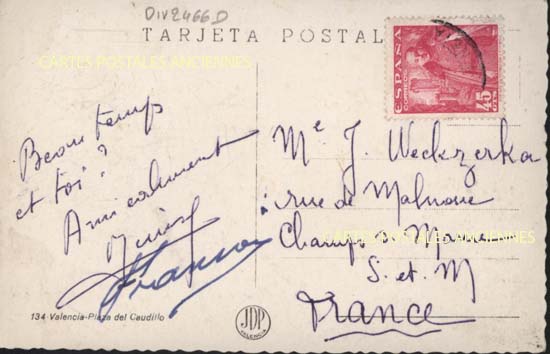 DIV2466D
TARJETA POSTAL
CARTES POSTALES ANCIENNES
ESPAÑA
CORREOS
45
CTS
Beau temps
et toi ?
Amicalement
Me J. Weckzerka
rue de Malnoue
Champs s. Marne
CARTES POSTALES ANCIENNES
S. et M
France
134 Valencia-Plaza del Caudillo
JDP
VALENCIA